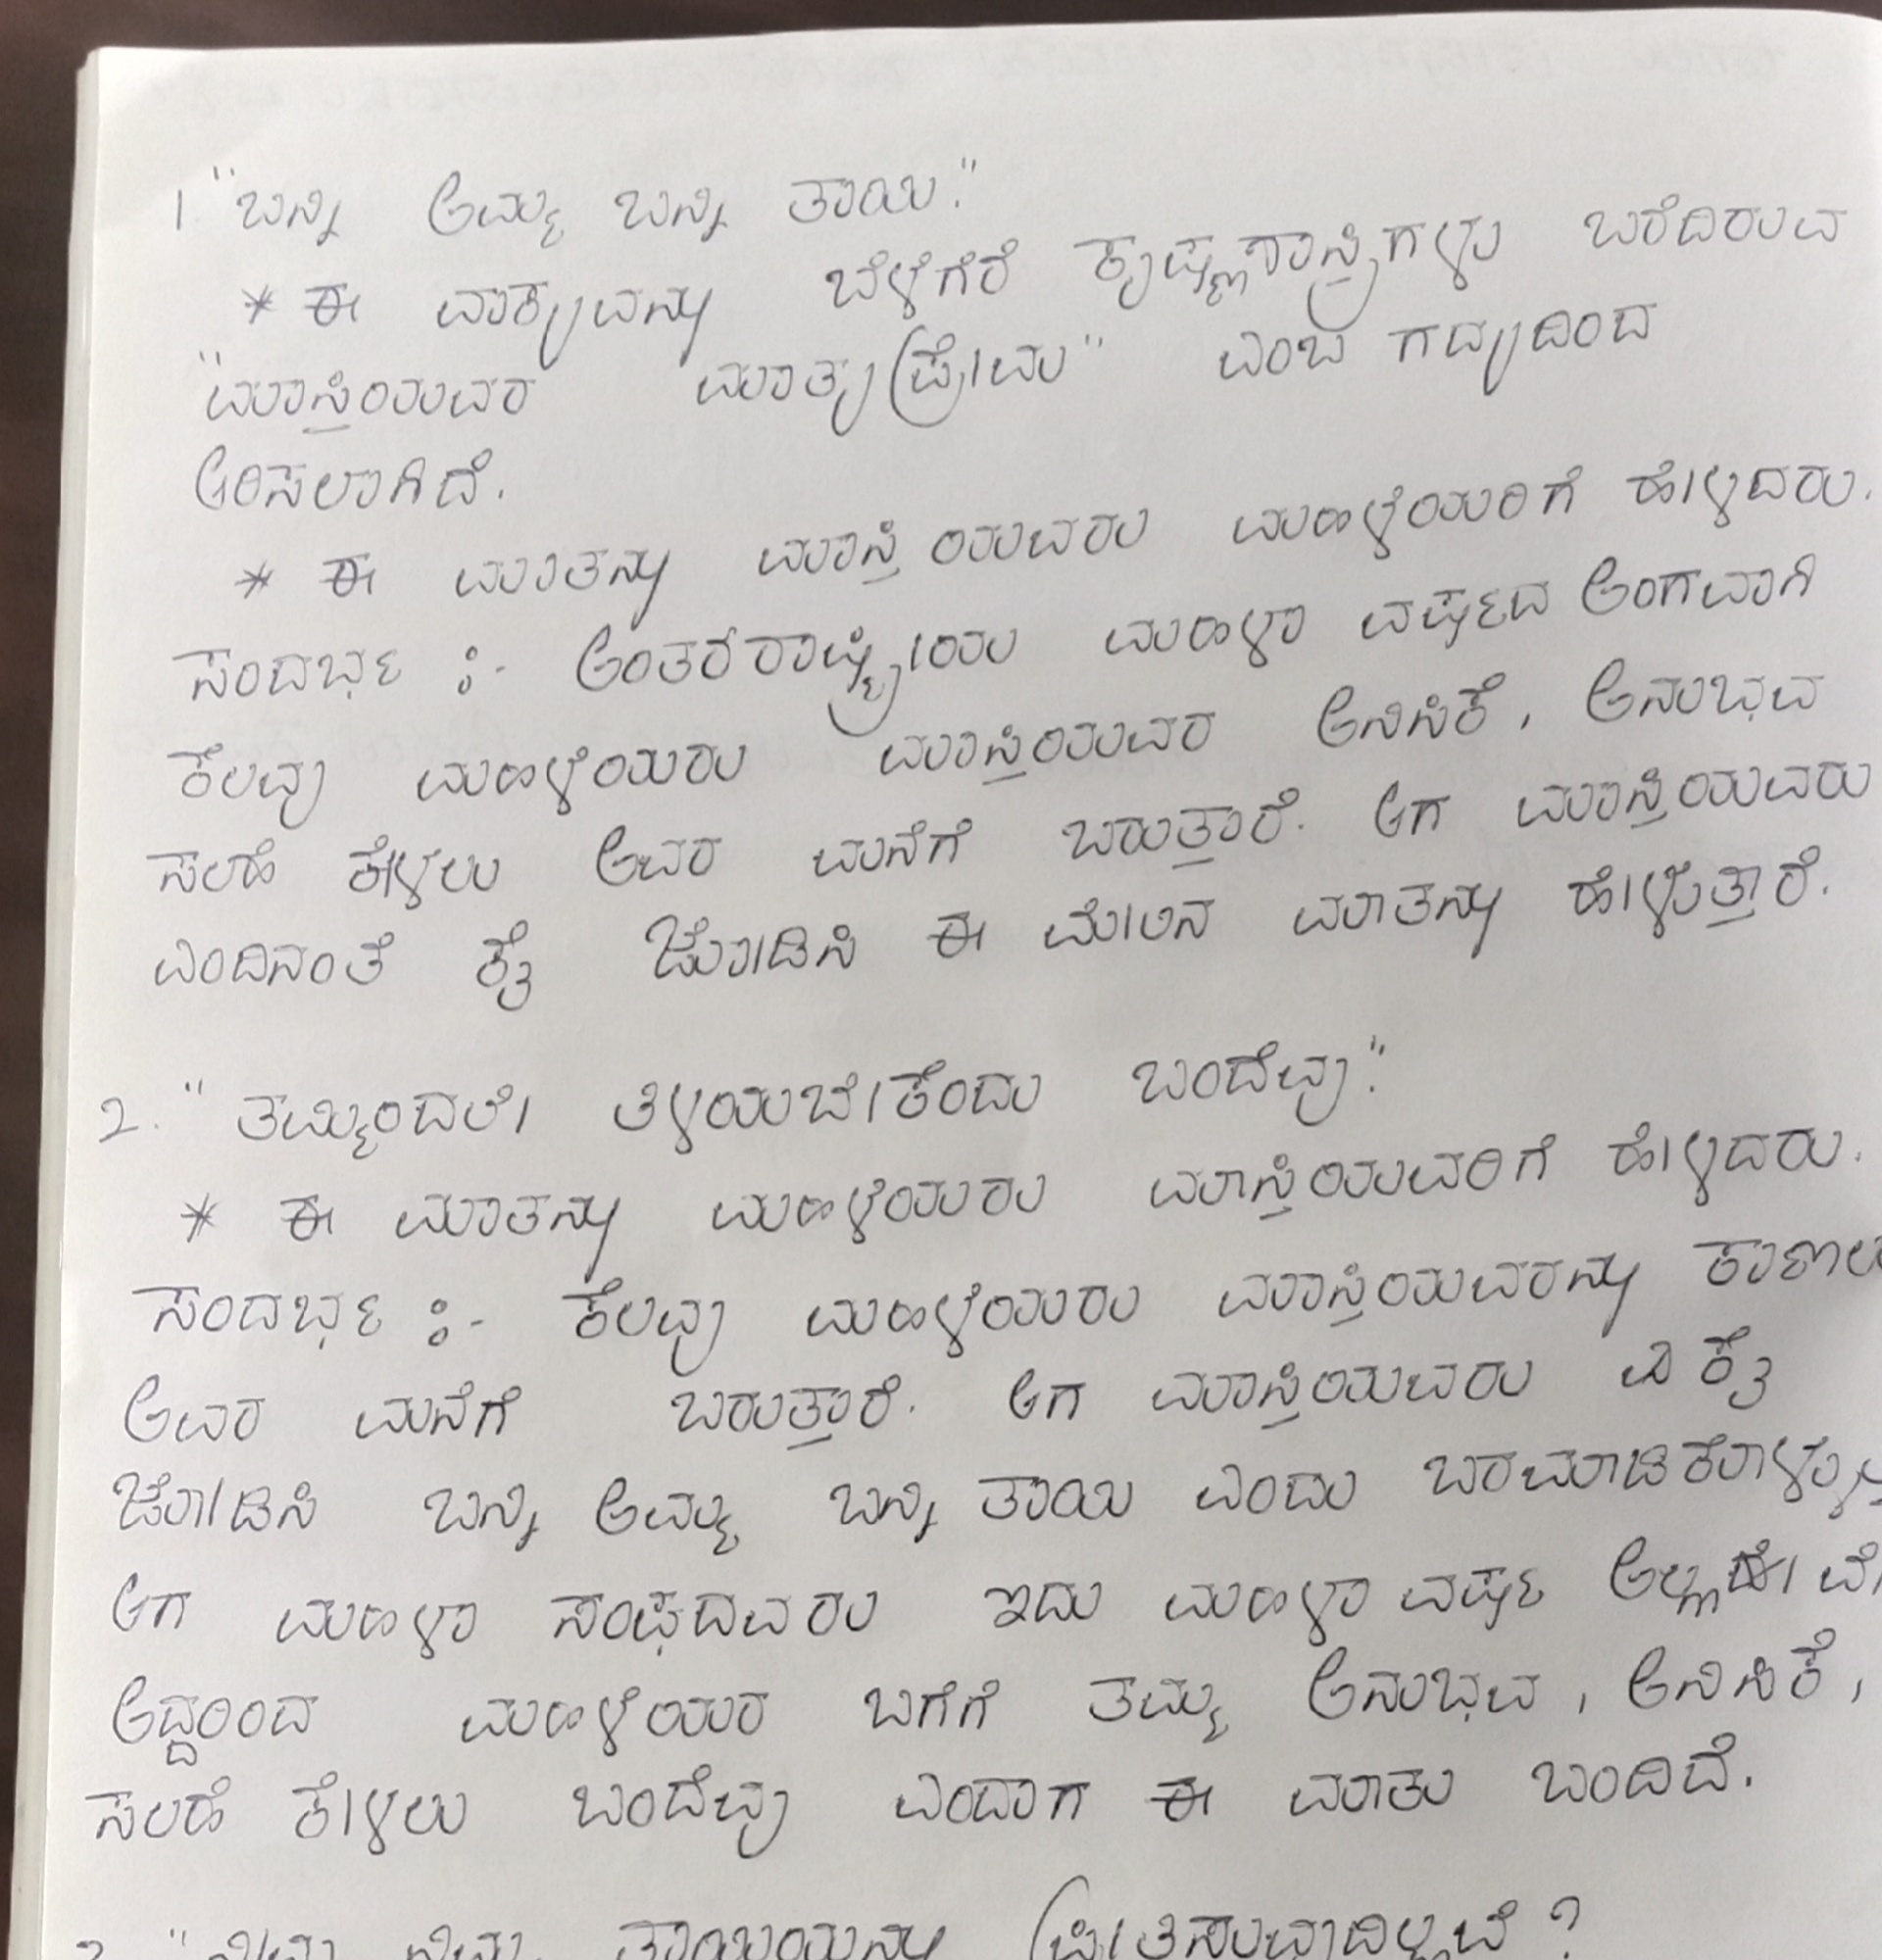 1. "ಬನ್ನಿ ಅಮ್ಮ ಬನ್ನಿ ತಾಯಿ."
* ಈ ವಾಕ್ಯವನ್ನು ಬೆಳೆಗೆರೆ ಕೃಷ್ಣಶಾಸ್ತ್ರಿಗಳು ಬರೆದಿರುವ
"ಮಾಸ್ತಿಯವರ ಮಾತೃಪ್ರೇಮ" ಎಂಬ ಗದ್ಯದಿಂದ
ಆರಿಸಲಾಗಿದೆ.
* ಈ ಮಾತನ್ನು ಮಾಸ್ತಿಯವರು ಮಹಿಳೆಯರಿಗೆ ಹೇಳಿದರು.
ಸಂದರ್ಭ :- ಅಂತರರಾಷ್ಟ್ರೀಯ ಮಹಿಳಾ ವರ್ಷದ ಅಂಗವಾಗಿ
ಕೆಲವು ಮಹಿಳೆಯರು ಮಾಸ್ತಿಯವರ ಅನಿಸಿಕೆ, ಅನುಭವ
ಸಲಹೆ ಕೇಳಲು ಅವರ ಮನೆಗೆ ಬರುತ್ತಾರೆ. ಆಗ ಮಾಸ್ತಿಯವರು
ಎಂದಿನಂತೆ ಕೈ ಜೋಡಿಸಿ ಈ ಮೇಲಿನ ಮಾತನ್ನು ಹೇಳುತ್ತಾರೆ.
2. "ತಮ್ಮಿಂದಲೇ ತಿಳಿಯಬೇಕೆಂದು ಬಂದೆವು."
* ಈ ಮಾತನ್ನು ಮಹಿಳೆಯರು ಮಾಸ್ತಿಯವರಿಗೆ ಹೇಳಿದರು.
ಸಂದರ್ಭ :- ಕೆಲವು ಮಹಿಳೆಯರು ಮಾಸ್ತಿಯವರನ್ನು ಕಾಣಲು
ಅವರ ಮನೆಗೆ ಬರುತ್ತಾರೆ. ಆಗ ಮಾಸ್ತಿಯವರು ಕೈ
ಜೋಡಿಸಿ ಬನ್ನಿ ಅಮ್ಮ ಬನ್ನಿ ತಾಯಿ ಎಂದು
ಆಗ ಮಹಿಳಾ ಸಂಘದವರು ಇದು ಮಹಿಳಾ ವರ್ಷ
ಆದ್ದರಿಂದ ಮಹಿಳೆಯರ ಬಗೆಗೆ ತಮ್ಮ ಅನುಭವ, ಅನಿಸಿಕೆ,
ಸಲಹೆ ಕೇಳಲು ಬಂದೆವು ಎಂದಾಗ ಈ ಮಾತು ಬಂದಿದೆ.
ತಾಯಿಯನ್ನು ಪ್ರೀತಿಸುವುದಿಲ್ಲವೆ ?